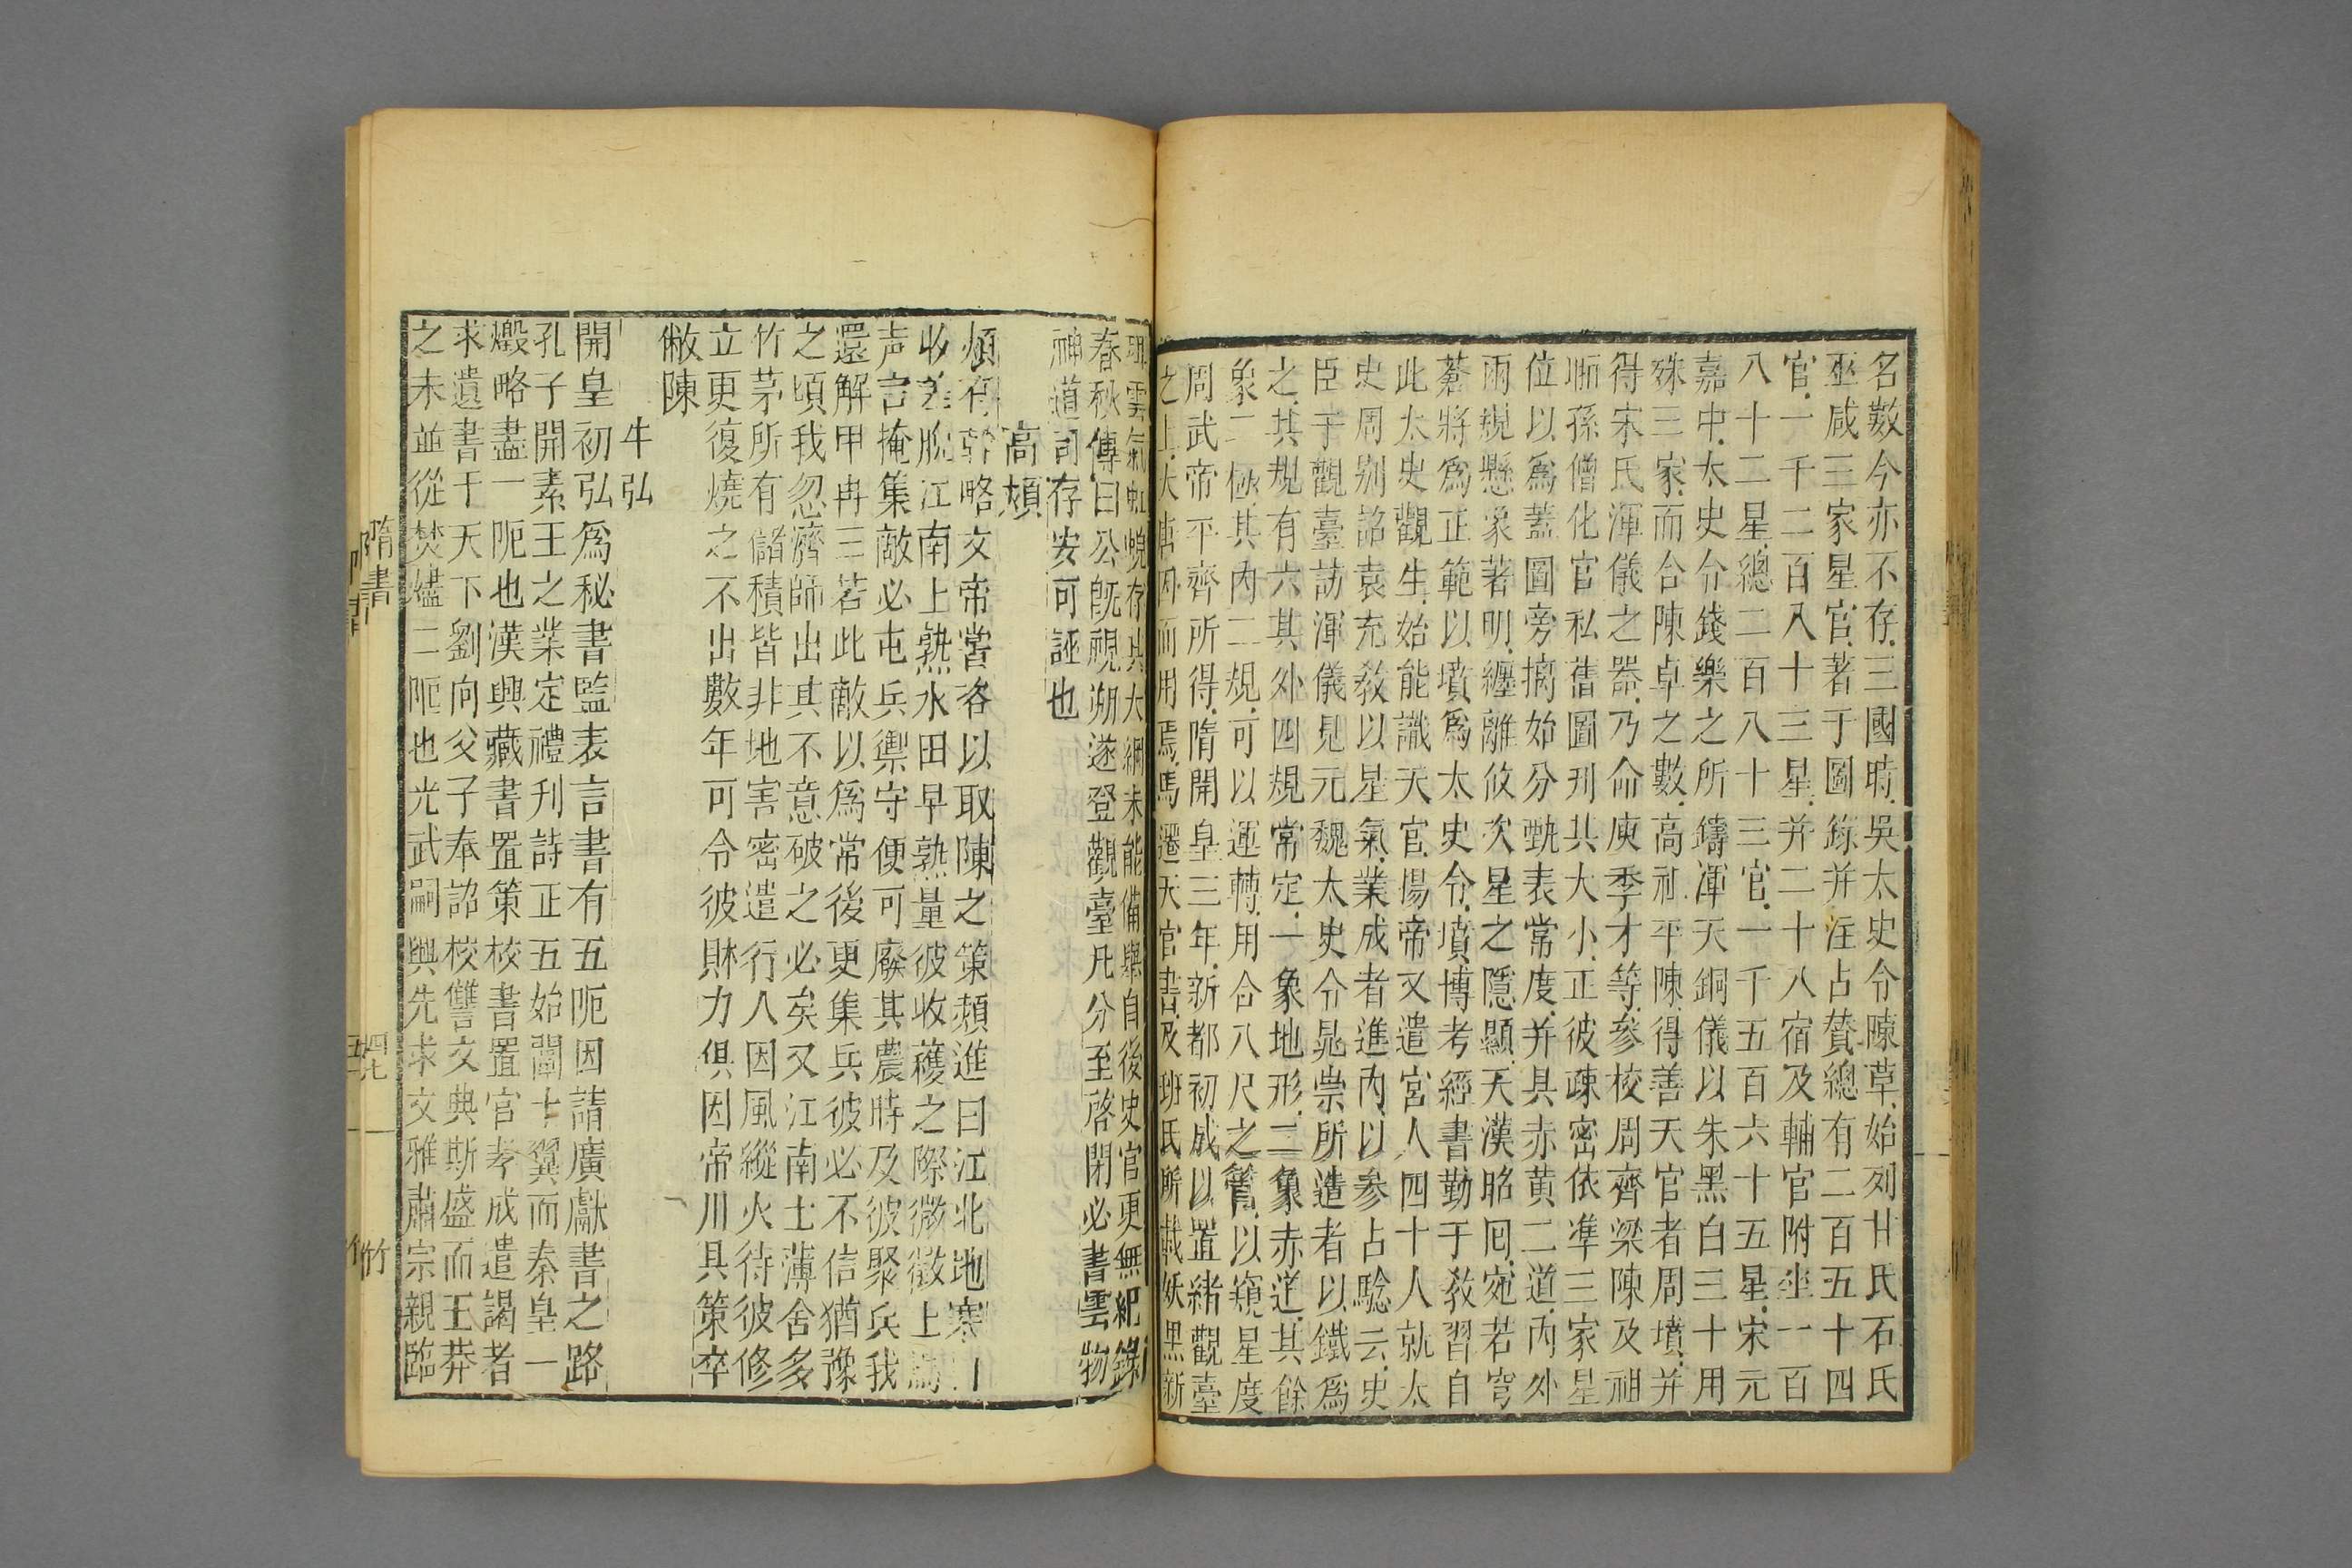 名數今亦不存三國時吳太史令陳草始列甘氏石氏
巫咸三家星官著于圖錄并注占贊總有二百五十四
官一千二百八十三星并二十八宿及輔官附坐一百
八十二星總二百八十三官一千五百六十五星宋元
嘉中太史令錢樂之所鑄渾天銅儀以朱黑白三十用
殊三家而合陳卓之數高祖平陳得善天官者周墳并
得宋氏渾儀之器乃命庾季才等參校周齊梁陳及祖
暅孫僧化官私舊圖刋其大小正彼疎密依準三家星
位以爲蓋圖旁摛始分甄表常度并具赤黄二道內外
兩規懸象著明纏離攸次星之隱顯天漢昭囘宛若穹
蒼將爲正範以墳爲太史令墳博考經書勤于敎習自
此太史觀生始能識天官揚帝又遣宮人四十人就太
史周別詔袁充敎以星氣業成者進內以參占驗云史
臣于觀臺訪渾儀見元魏太史令晁崇所造者以鐵爲
之其規有六其外四規常定一象地形二象赤道其餘
象二極其內二規可以運轉用合八尺之管以窺星度
周武帝平齊所得隋開皇三年新都初成以置緒觀臺
之上大唐因而用焉馬遷天官書及班氏所載妖黑新
珥雲氣虹蜺存其大綱未能備舉自後史官更無紀錄
春秋傳曰公旣視朔遂登觀臺凡分至啓閉必書雲物
神道司存安可誣也
高熲
熲有幹略文帝嘗咨以取陳之策熲進曰江北地寒
收差脫江南上熟水田早熟量彼收穫之際微徵上
声言掩集敵必屯兵禦守便可廢其農時及彼聚兵我
還解甲冉三若此敵以爲常後更集兵彼必不信猶豫
之頃我忽濟師出其不意破之必矣又江南土薄舍多
竹茅所有儲積皆非地害密遣行人因風縱火待彼修
立更復燒之不出數年可令彼財力俱因帝川具策卒
敝陳
牛弘
開皇初弘爲秘書監表言書有五阨因請廣獻書之路
孔子開素王之業定禮刋詩正五始闡十翼而秦皇一
燬略盡一阨也漢興藏書置策校書置官孝成遣謁者
求遺書于天下劉向父子奉詔校讐文典斯盛而王莽
之末並從焚燼二阨也光武嗣興先求文雅肅宗親臨
隋書
四七
竹